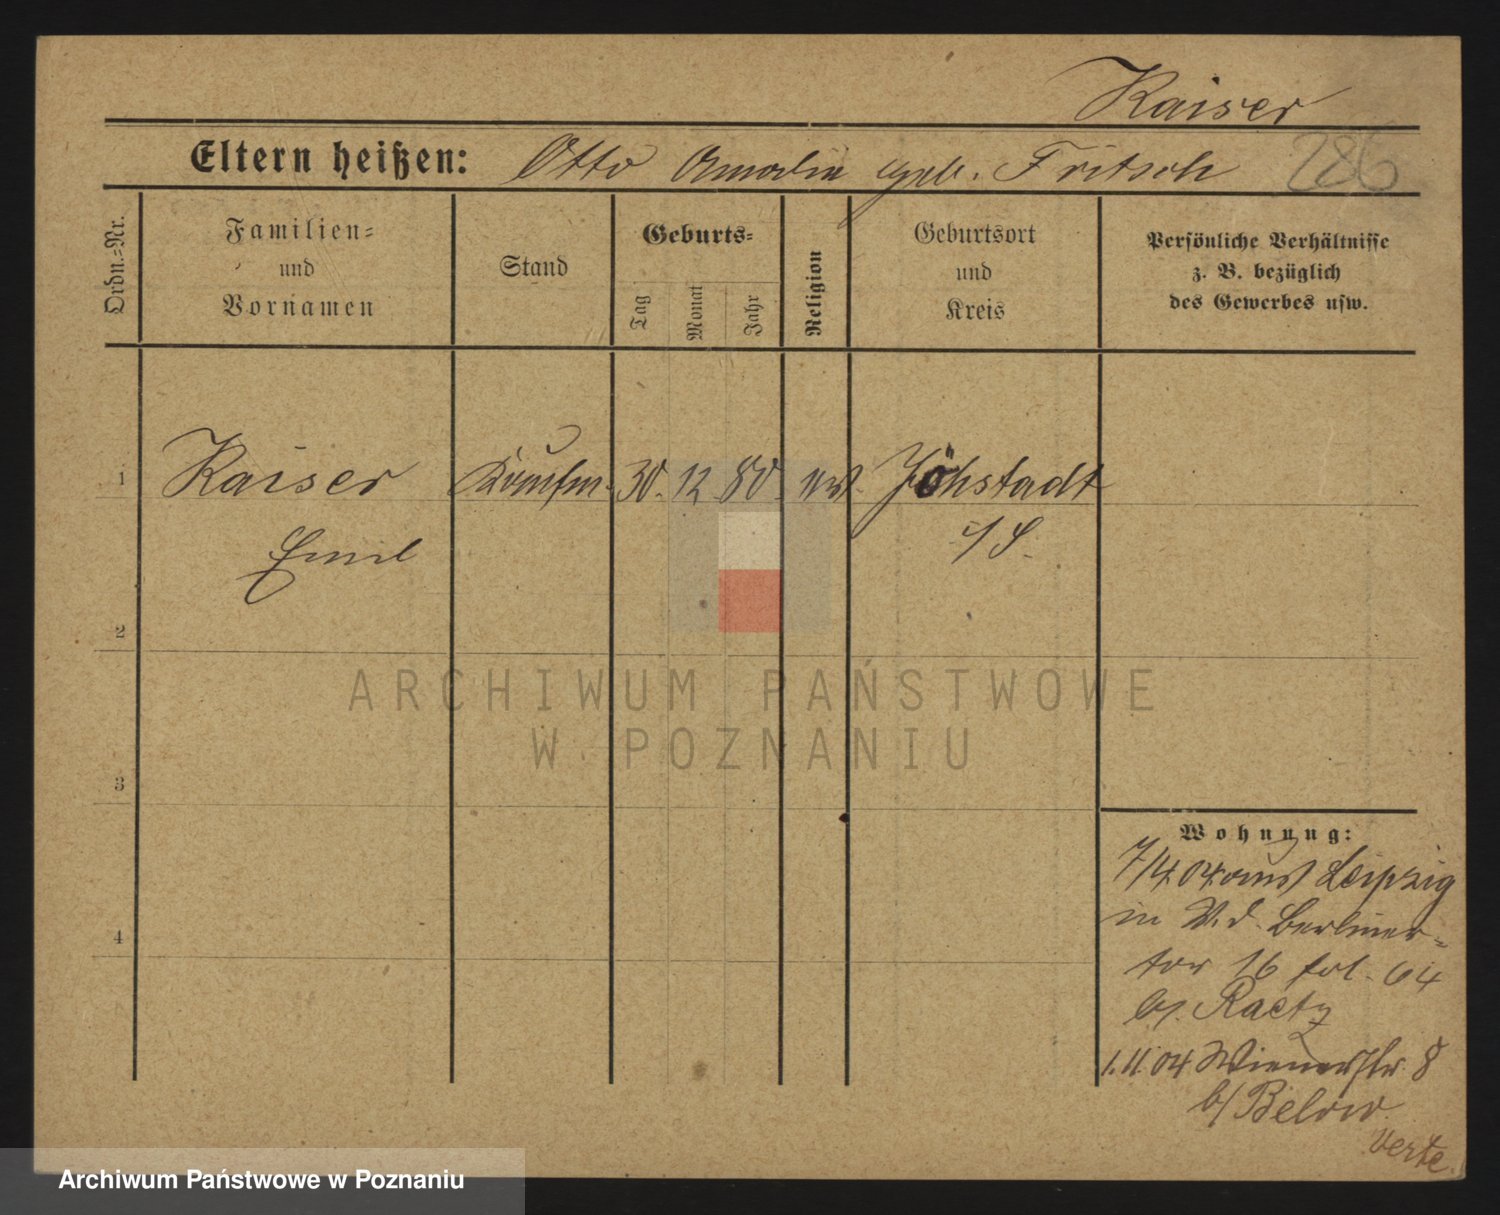 Kaiser
Eltern heißen: Otto Amalie geb. Fritsch 286
Ordn.-Nr.
Familien-
und
Vornamen
Stand
Geburts-
Tag
Monat
Jahr
Religion
Geburtsort
und
Kreis
Persönliche Verhältnisse
z. B. bezüglich
des Gewerbes usw.
1 Kaiser Kaufm. 30. 12. 80. ev. Jöhstadt
Emil i/S.
2
ARCHIWUM PAŃSTWOWE
W POZNANIU
3
Wohnung:
7/4. 04. aus Leipzig
in W. d. Berliner-
tor 16 fol. 64
b/. Raetz
1. 11. 04 Wienerstr. 8
b/ Below.
Verte.
4
Archiwum Państwowe w Poznaniu